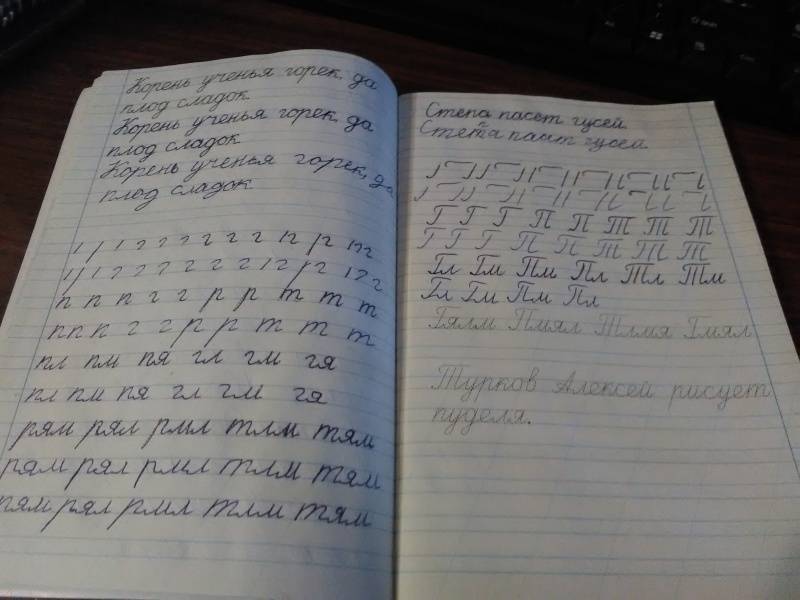 Корень ученья горек, да
плод сладок
Корень ученья горек, да
плод сладок
Корень ученья горек, да
плод сладок
г г г г г г
г г г г
п п п г г р р т т т
п п п г г р р т т т
пл пм пя гл гм гя
пл пм пя гл гм гя
рям рял рмл тлм тям
рям рял рмл тлм тям
рям рял рмл тлм тям
Степа пасет гусей
пасит гусей
Г Г Г П П Т Т Т
Г Г Г П П Т Т Т
Гл Гм Пм Пл Тл Тм
Гл Гм Пм Пл
Гялм Пмял Тлмя Гмял
Турков Алексей рисует
пуделя.